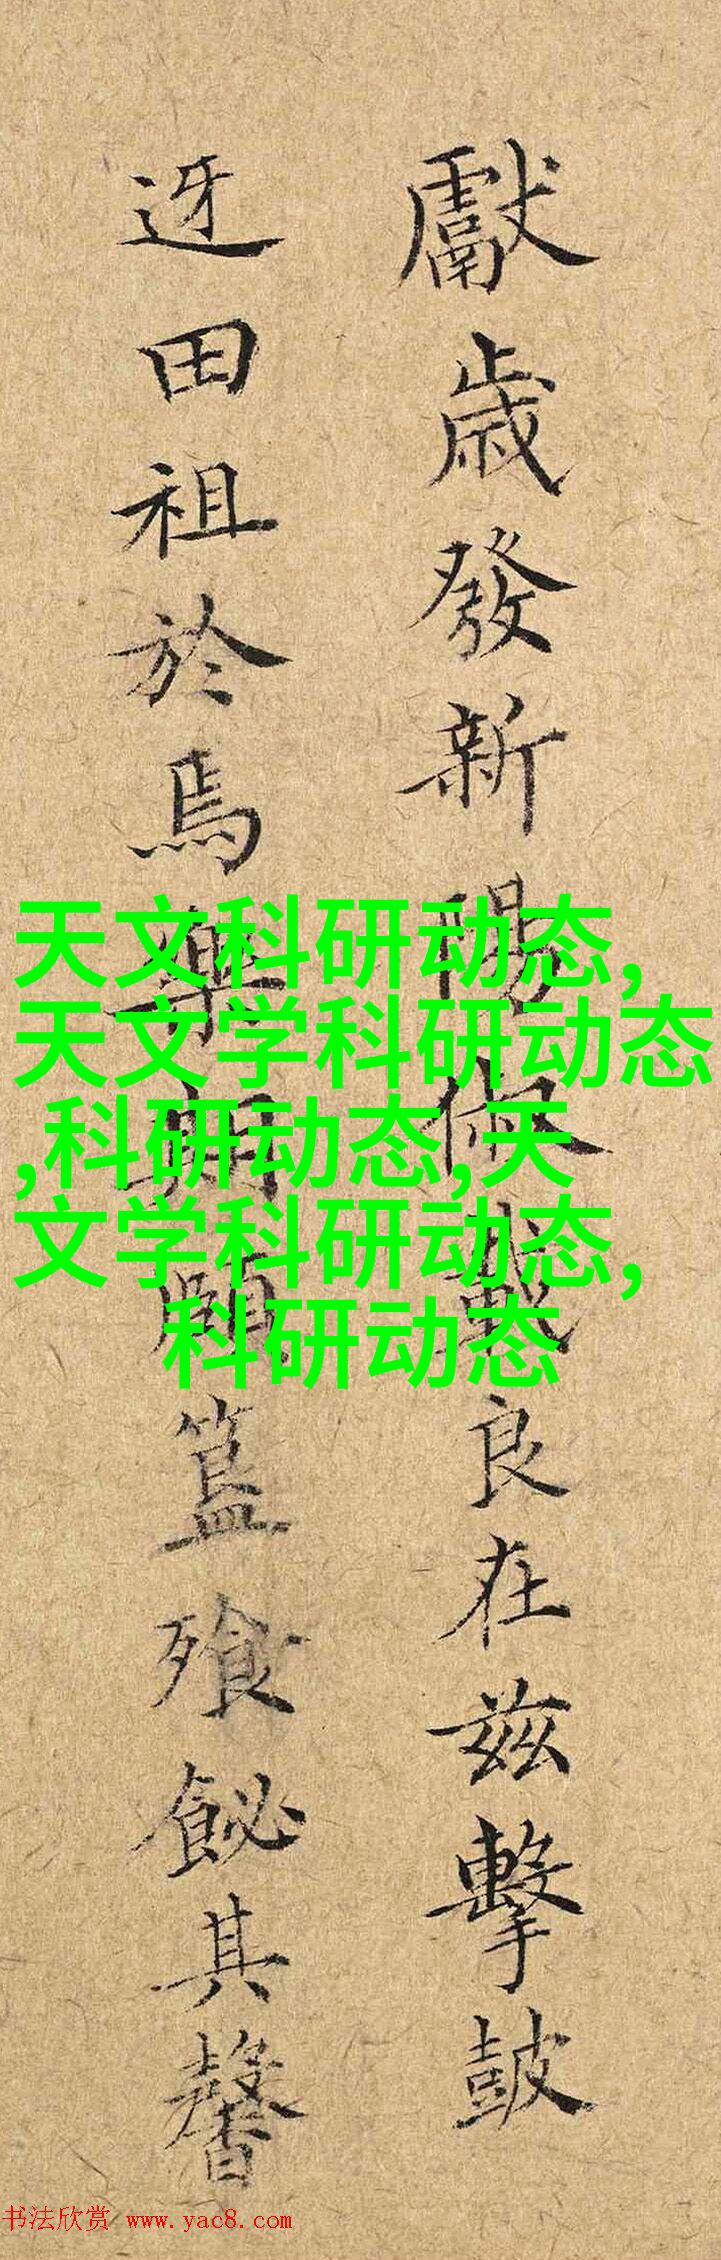 獻歲發新陽俶載良在兹擊鼓
迓田祖於焉樂簋飱飶其馨
天文科研动态,
天文学科研动态
,科研动态,天
文学科研动态,
科研动态
书法欣赏 www.yac8.com